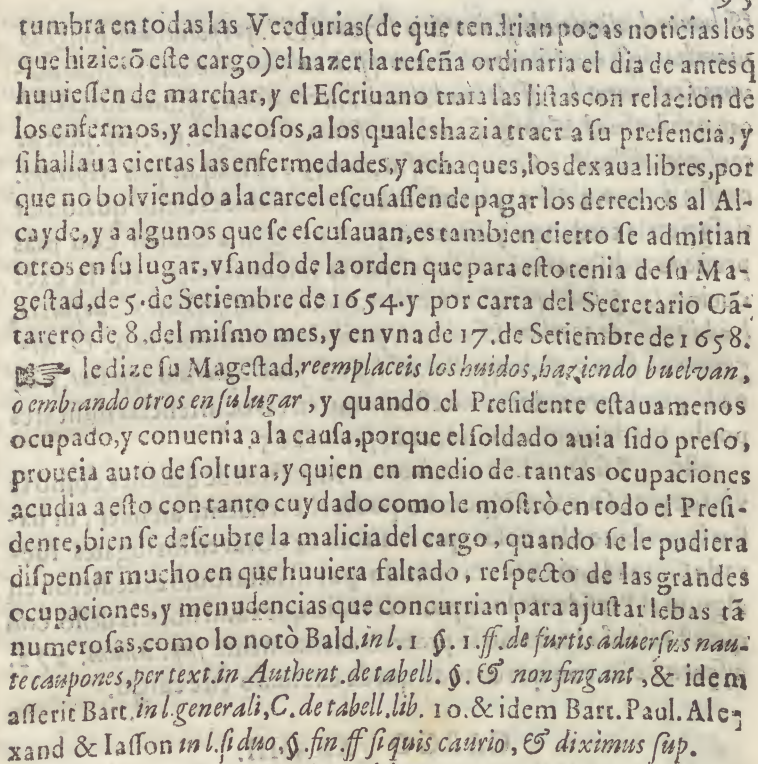 93
tumbra en todas las Veedurias (de que tendrian pocas noticias los
que hizierõ este cargo) el hazer la reseña ordinaria el dia de antes q̃
huuiessen de marchar, y el Escriuano traia las listas con relacion de
los enfermos, y achacosos, a los quales hazia traer a su presencia, y
si hallaua ciertas las enfermedades, y achaques, los dexaua libres, por
que no bolviendo a la carcel escusassen de pagar los derechos al Al-
cayde, y a algunos que se escusauan, es tambien cierto se admitian
otros en su lugar, vsando de la orden que para esto tenia de su Ma-
gestad, de 5. de Setiembre de 1654. y por carta del Secretario Cã-
tarero de 8. del mismo mes, y en vna de 17. de Setiembre de 1658.
☞ le dize su Magestad, reemplaceis los huidos, haziendo buelvan,
ò embiando otros en su lugar, y quando el Presidente estaua menos
ocupado, y conuenia a la causa, porque el soldado auia sido preso,
proueia auto de soltura, y quien en medio de tantas ocupaciones
acudia a esto con tanto cuydado como le mostrò en todo el Presi-
dente, bien se descubre la malicia del cargo, quando se le pudiera
dispensar mucho en que huuiera faltado, respecto de las grandes
ocupaciones, y menudencias que concurrian para ajustar lebas tã
numerosas, como lo notò Bald. in l. 1 §. 1. ff. de furtis aduersus nau-
te caupones, per text. in Authent. de tabell. §. & non fingant, & idem
asserit Bart. in l. generali, C. de tabell. lib. 10. & idem Bart. Paul. Ale-
xand & Iasson in l. si duo, §. fin. ff si quis caurio, & diximus sup.